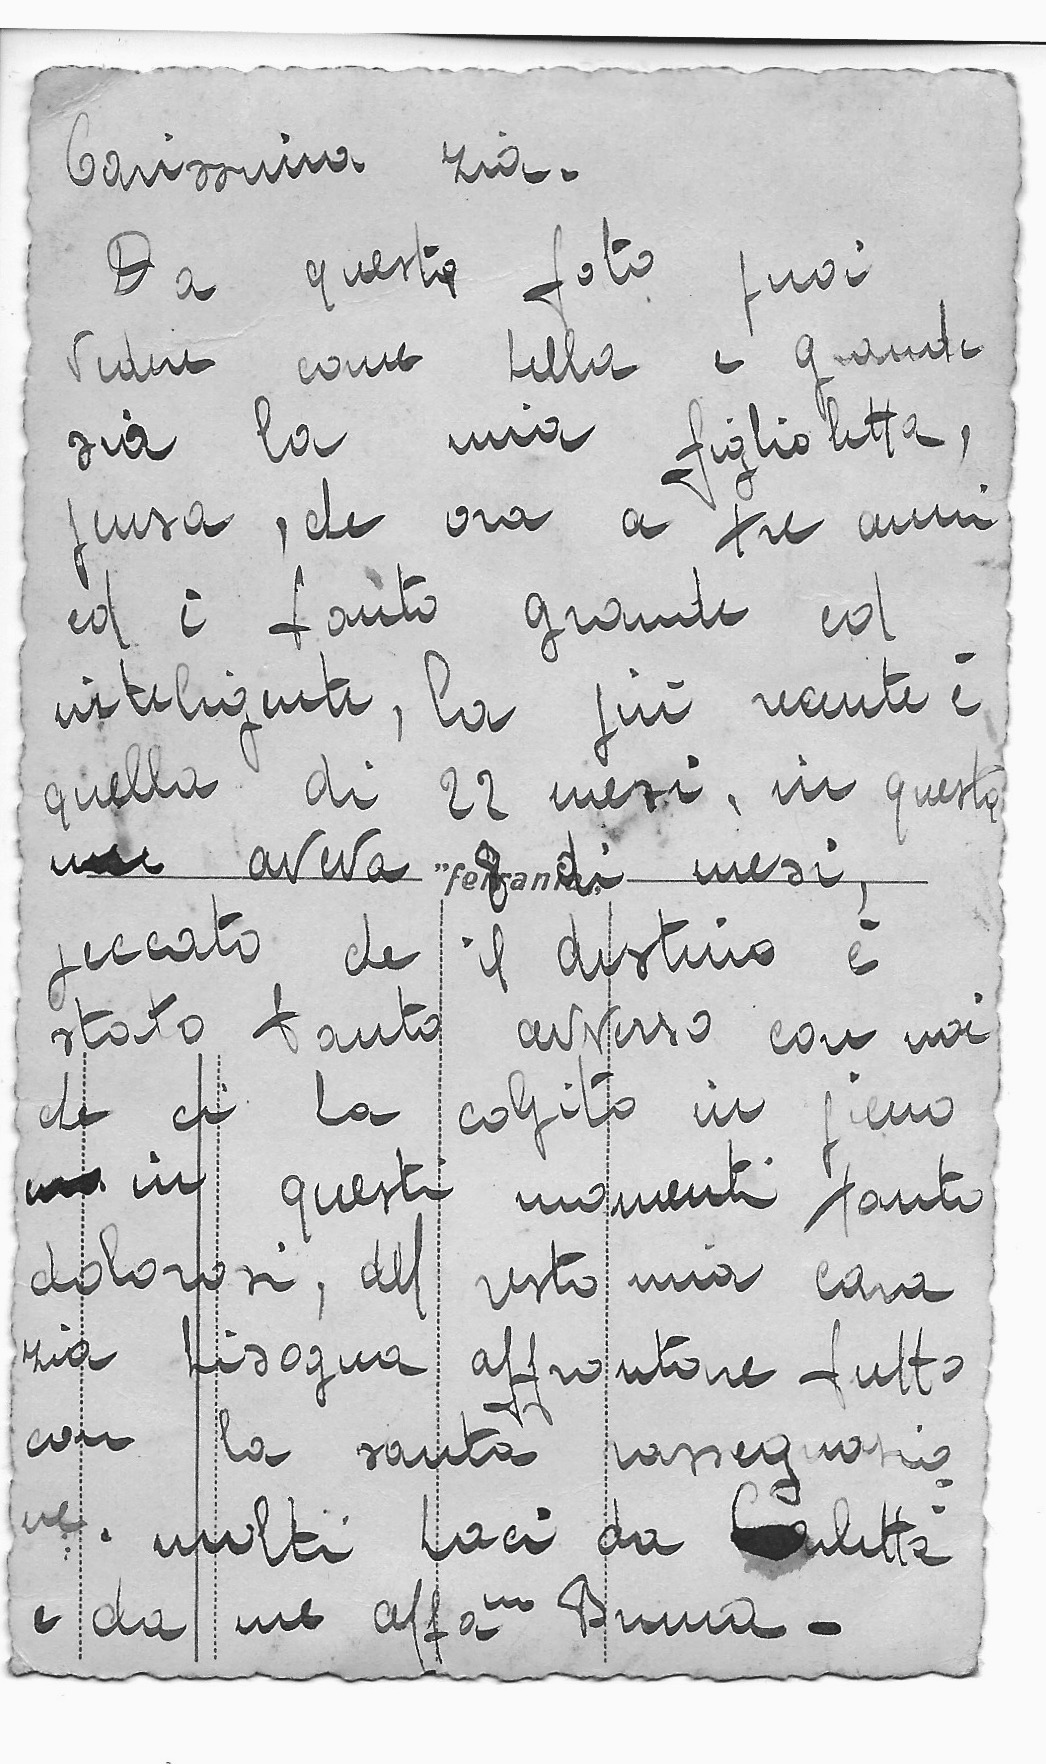 Carissima zia.
Da questa foto puoi
vedere come bella e grande
sia la mia figlioletta,
pensa, che ora a tre anni
ed è tanto grande ed
inteligente, la più recente è
quella di 22 mesi, in questa
aveva 8 di mesi,
"ferrania"
peccato che il destino è
stato tanto avverso con noi
che ci ha colpito in pieno
in questi momenti tanto
dolorosi, del resto mia cara
zia bisogna affrontare tutto
con la santa rassegnazio
ne. molti baci da Carletta
e da me affa ma Bruna -